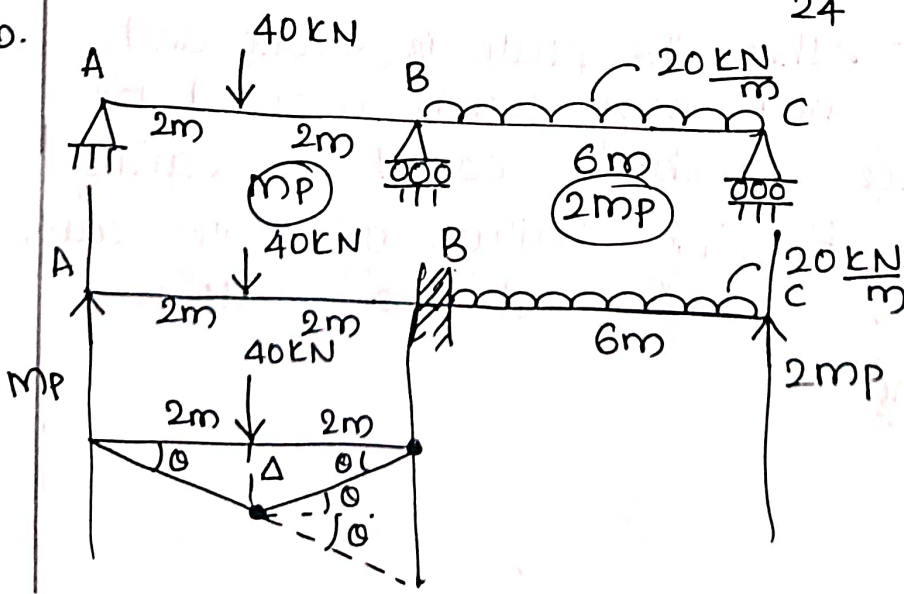 24
D.
40 KN
A
B
20 KN/m
C
2m
2m
6m
mp
2mp
40KN
A
B
20 KN/m
C
2m
2m
6m
40KN
Mp
2mp
2m
2m
θ
Δ
θ
θ
θ